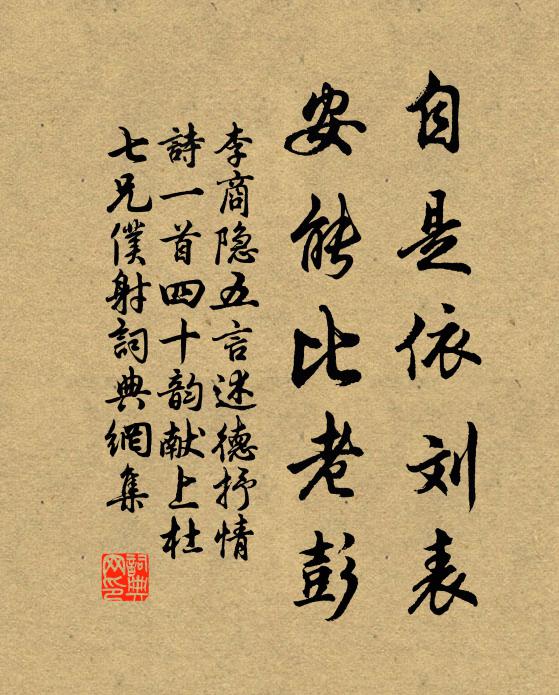 自是依刘表
安能比老彭
李商隐五言述德抒情
詩一首四十韵献上杜
七兄僕射詞典網集
詞典
网印